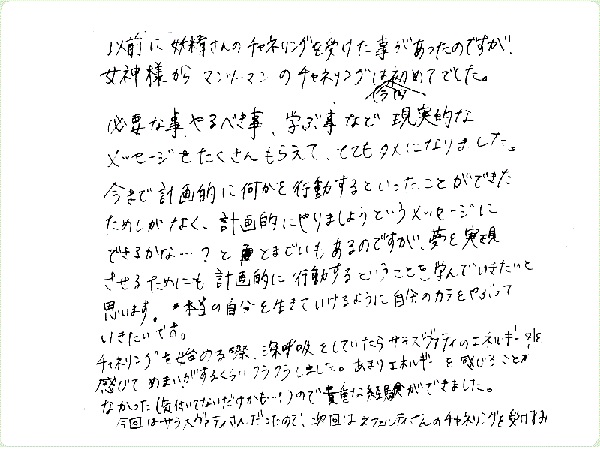 以前に妖精さんのチャネリングを受けた事があったのですが、
女神様からマンツーマンのチャネリングは今回初めてでした。
必要な事やるべき事、学ぶ事など現実的な
メッセージをたくさんもらえて、とてもタメになりました。
今まで計画的に何かを行動するといったことができた
ためしがなく、計画的にやりましようというメッセージに
できるかな…？ととまどいもあるのですが、夢を実現
させるためにも計画的に行動するということを学んでいきたいと
思います。本当の自分を生きていけるように自分のカラをやぶって
いきたいです。
チャネリングを始める際、深呼吸をしていたらサラスヴァティのエネルギーを
感じて めまいがするくらいフラフラしました。あまりエネルギーを感じることが
なかった(気付いてないだけかも…！)ので貴重な経験ができました。
今回はサラスヴァティさんだったので、次回は さんのチャネリングを受けてみ